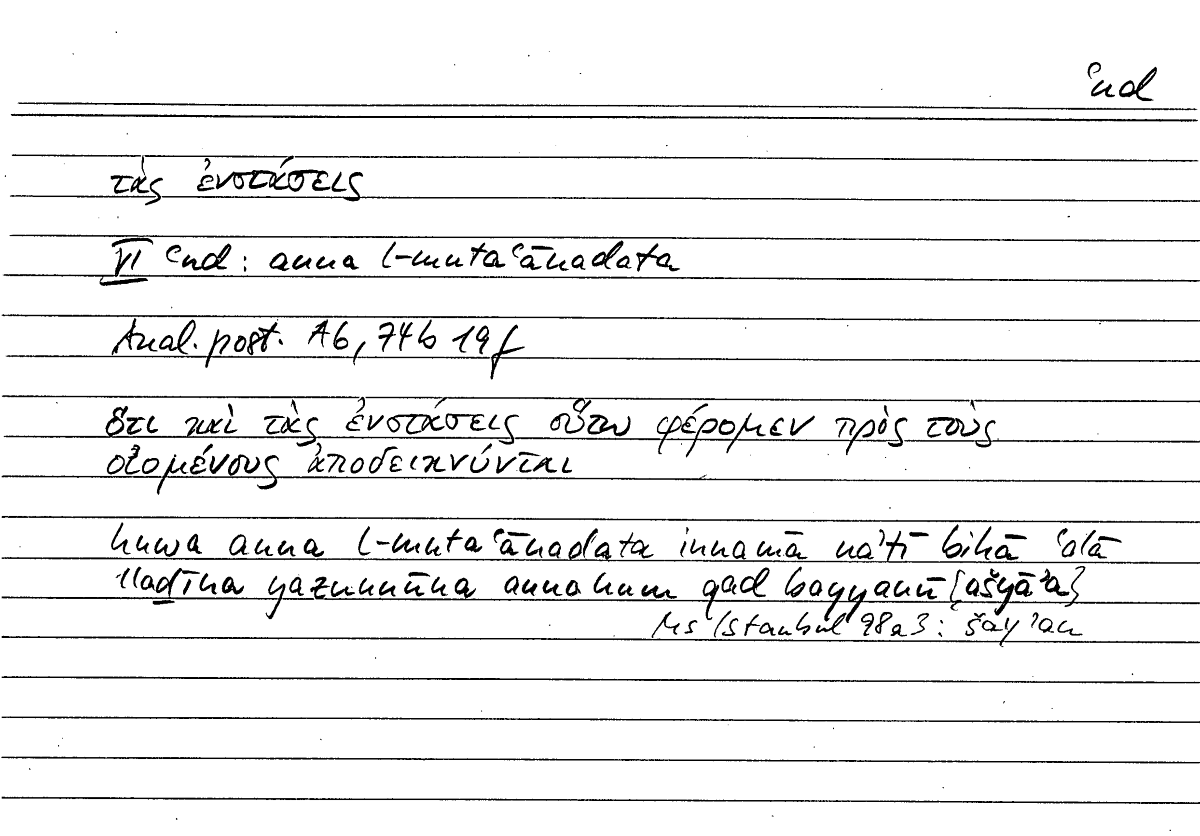 ʿnd
τὰς ἐνστάσεις
VI ʿnd : anna l-mutaʿānadata
Anal. post. A6, 74b 19f
ὅτι καὶ τὰς ἐνστάσεις οὕτω φέρομεν πρὸς τοὺς
οἰομένους ἀποδεικνύνται
huwa anna l-mutaʿānadata innamā naʾtī bihā ʿalā
lladīna yaẓunnūna annahum qad bayyanū [ašyāʾa]
Ms Istanbul 98a3 : šayʾan